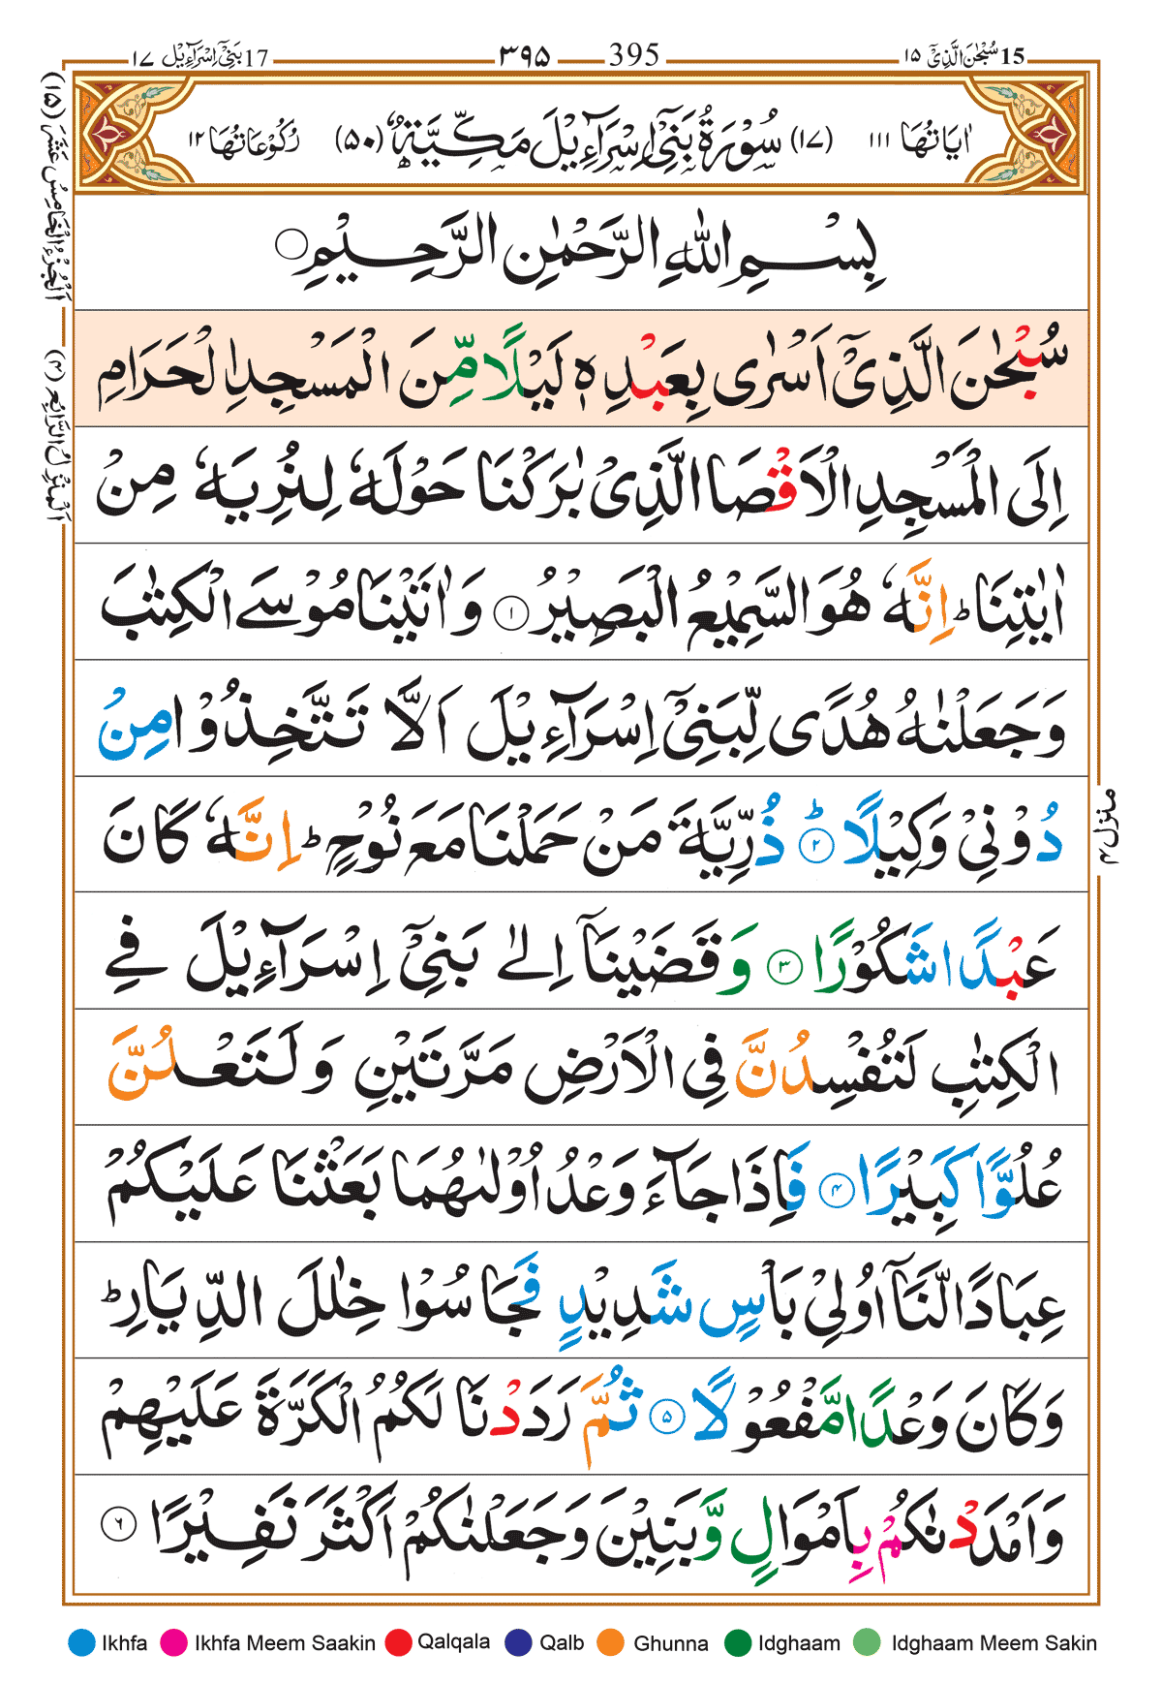 15 سُبْحٰنَ الَّذِیْۤ ۱۵
395 ——— ۳۹۵
17 بَنِیْۤ اِسْرَآءِیْل ۱۷
اَلْجُزْءُ الْخَامِسُ عَشَرَ (۱۵)
اٰیَاتُهَا ۱۱۱ (۱۷) سُوْرَةُ بَنِیْۤ اِسْرَآءِیْلَ مَكِّیَّةٌ (۵۰) رُكُوْعَاتُهَا ۱۲
بِسْمِ اللّٰهِ الرَّحْمٰنِ الرَّحِیْمِ
سُبْحٰنَ الَّذِیْۤ اَسْرٰى بِعَبْدِهٖ لَیْلًا مِّنَ الْمَسْجِدِ الْحَرَامِ
اَلْمَنْزِلُ الرَّابِعُ (۴)
اِلَى الْمَسْجِدِ الْاَقْصَا الَّذِیْ بٰرَكْنَا حَوْلَهٗ لِنُرِیَهٗ مِنْ
اٰیٰتِنَا ؕ اِنَّهٗ هُوَ السَّمِیْعُ الْبَصِیْرُ ۱ وَ اٰتَیْنَا مُوْسَى الْكِتٰبَ
وَ جَعَلْنٰهُ هُدًى لِّبَنِیْۤ اِسْرَآءِیْلَ اَلَّا تَتَّخِذُوْا مِنْ
دُوْنِیْ وَكِیْلًا ؕ ۲ ذُرِّیَّةَ مَنْ حَمَلْنَا مَعَ نُوْحٍ ؕ اِنَّهٗ كَانَ
منزل ۴
عَبْدًا شَكُوْرًا ۳ وَ قَضَیْنَاۤ اِلٰى بَنِیْۤ اِسْرَآءِیْلَ فِی
الْكِتٰبِ لَتُفْسِدُنَّ فِی الْاَرْضِ مَرَّتَیْنِ وَ لَتَعْلُنَّ
عُلُوًّا كَبِیْرًا ۴ فَاِذَا جَآءَ وَعْدُ اُوْلٰىهُمَا بَعَثْنَا عَلَیْكُمْ
عِبَادًا لَّنَاۤ اُولِیْ بَاْسٍ شَدِیْدٍ فَجَاسُوْا خِلٰلَ الدِّیَارِ ؕ
وَ كَانَ وَعْدًا مَّفْعُوْلًا ۵ ثُمَّ رَدَدْنَا لَكُمُ الْكَرَّةَ عَلَیْهِمْ
وَ اَمْدَدْنٰكُمْ بِاَمْوَالٍ وَّ بَنِیْنَ وَ جَعَلْنٰكُمْ اَكْثَرَ نَفِیْرًا ۶
Ikhfa Ikhfa Meem Saakin Qalqala Qalb Ghunna Idghaam Idghaam Meem Sakin